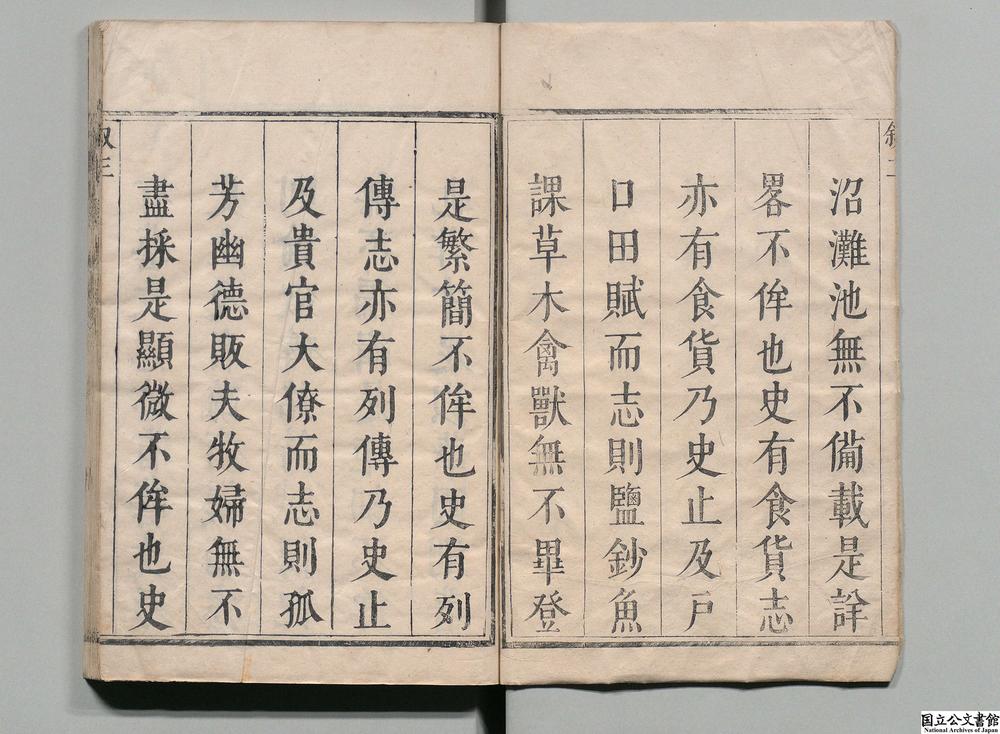 沼灘池無不備載是詳
畧不侔也史有食貨志
亦有食貨乃史止及戶
口田賦而志則鹽鈔魚
課草木禽獸無不畢登
是繁簡不侔也史有列
傳志亦有列傳乃史止
及貴官大僚而志則孤
芳幽德販夫牧婦無不
盡採是顯微不侔也史
叙三
国立公文書館
National Archives of Japan